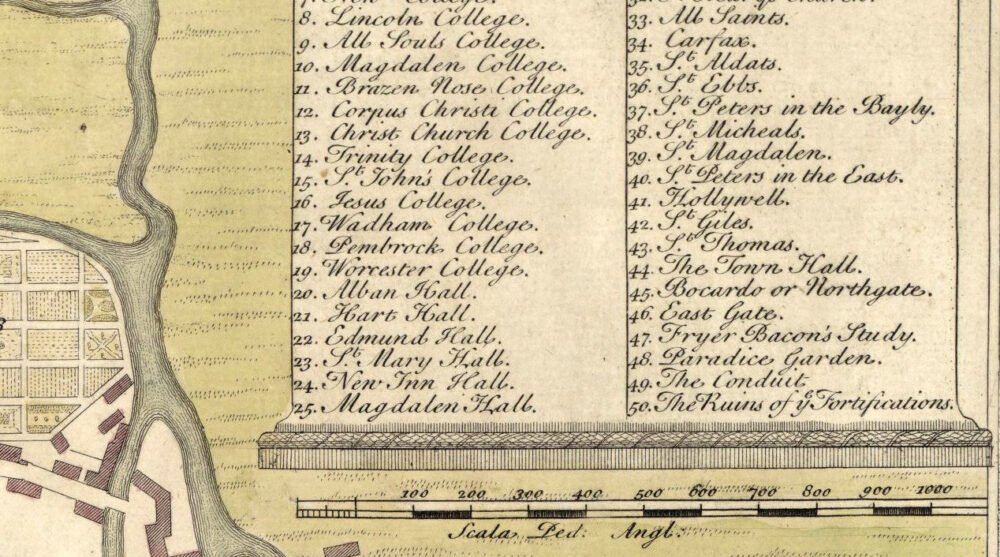 7. New College.
8. Lincoln College.
9. All Souls College.
10. Magdalen College.
11. Brazen Nose College.
12. Corpus Christi College.
13. Christ Church College.
14. Trinity College.
15. St. John's College.
16. Jesus College.
17. Wadham College.
18. Pembrock College.
19. Worcester College.
20. Alban Hall.
21. Hart Hall.
22. Edmund Hall.
23. St. Mary Hall.
24. New Inn Hall.
25. Magdalen Hall.
33. All Saints.
34. Carfax.
35. St. Aldats.
36. St. Ebbs.
37. St. Peters in the Bayly.
38. St. Micheals.
39. St. Magdalen.
40. St. Peters in the East.
41. Hollywell.
42. St. Giles.
43. St. Thomas.
44. The Town Hall.
45. Bocardo or Northgate.
46. East Gate.
47. Fryer Bacon's Study.
48. Paradice Garden.
49. The Conduit
50. The Ruins of ye Fortifications.
100 200 300 400 500 600 700 800 900 1000
Scala Ped: Angl: